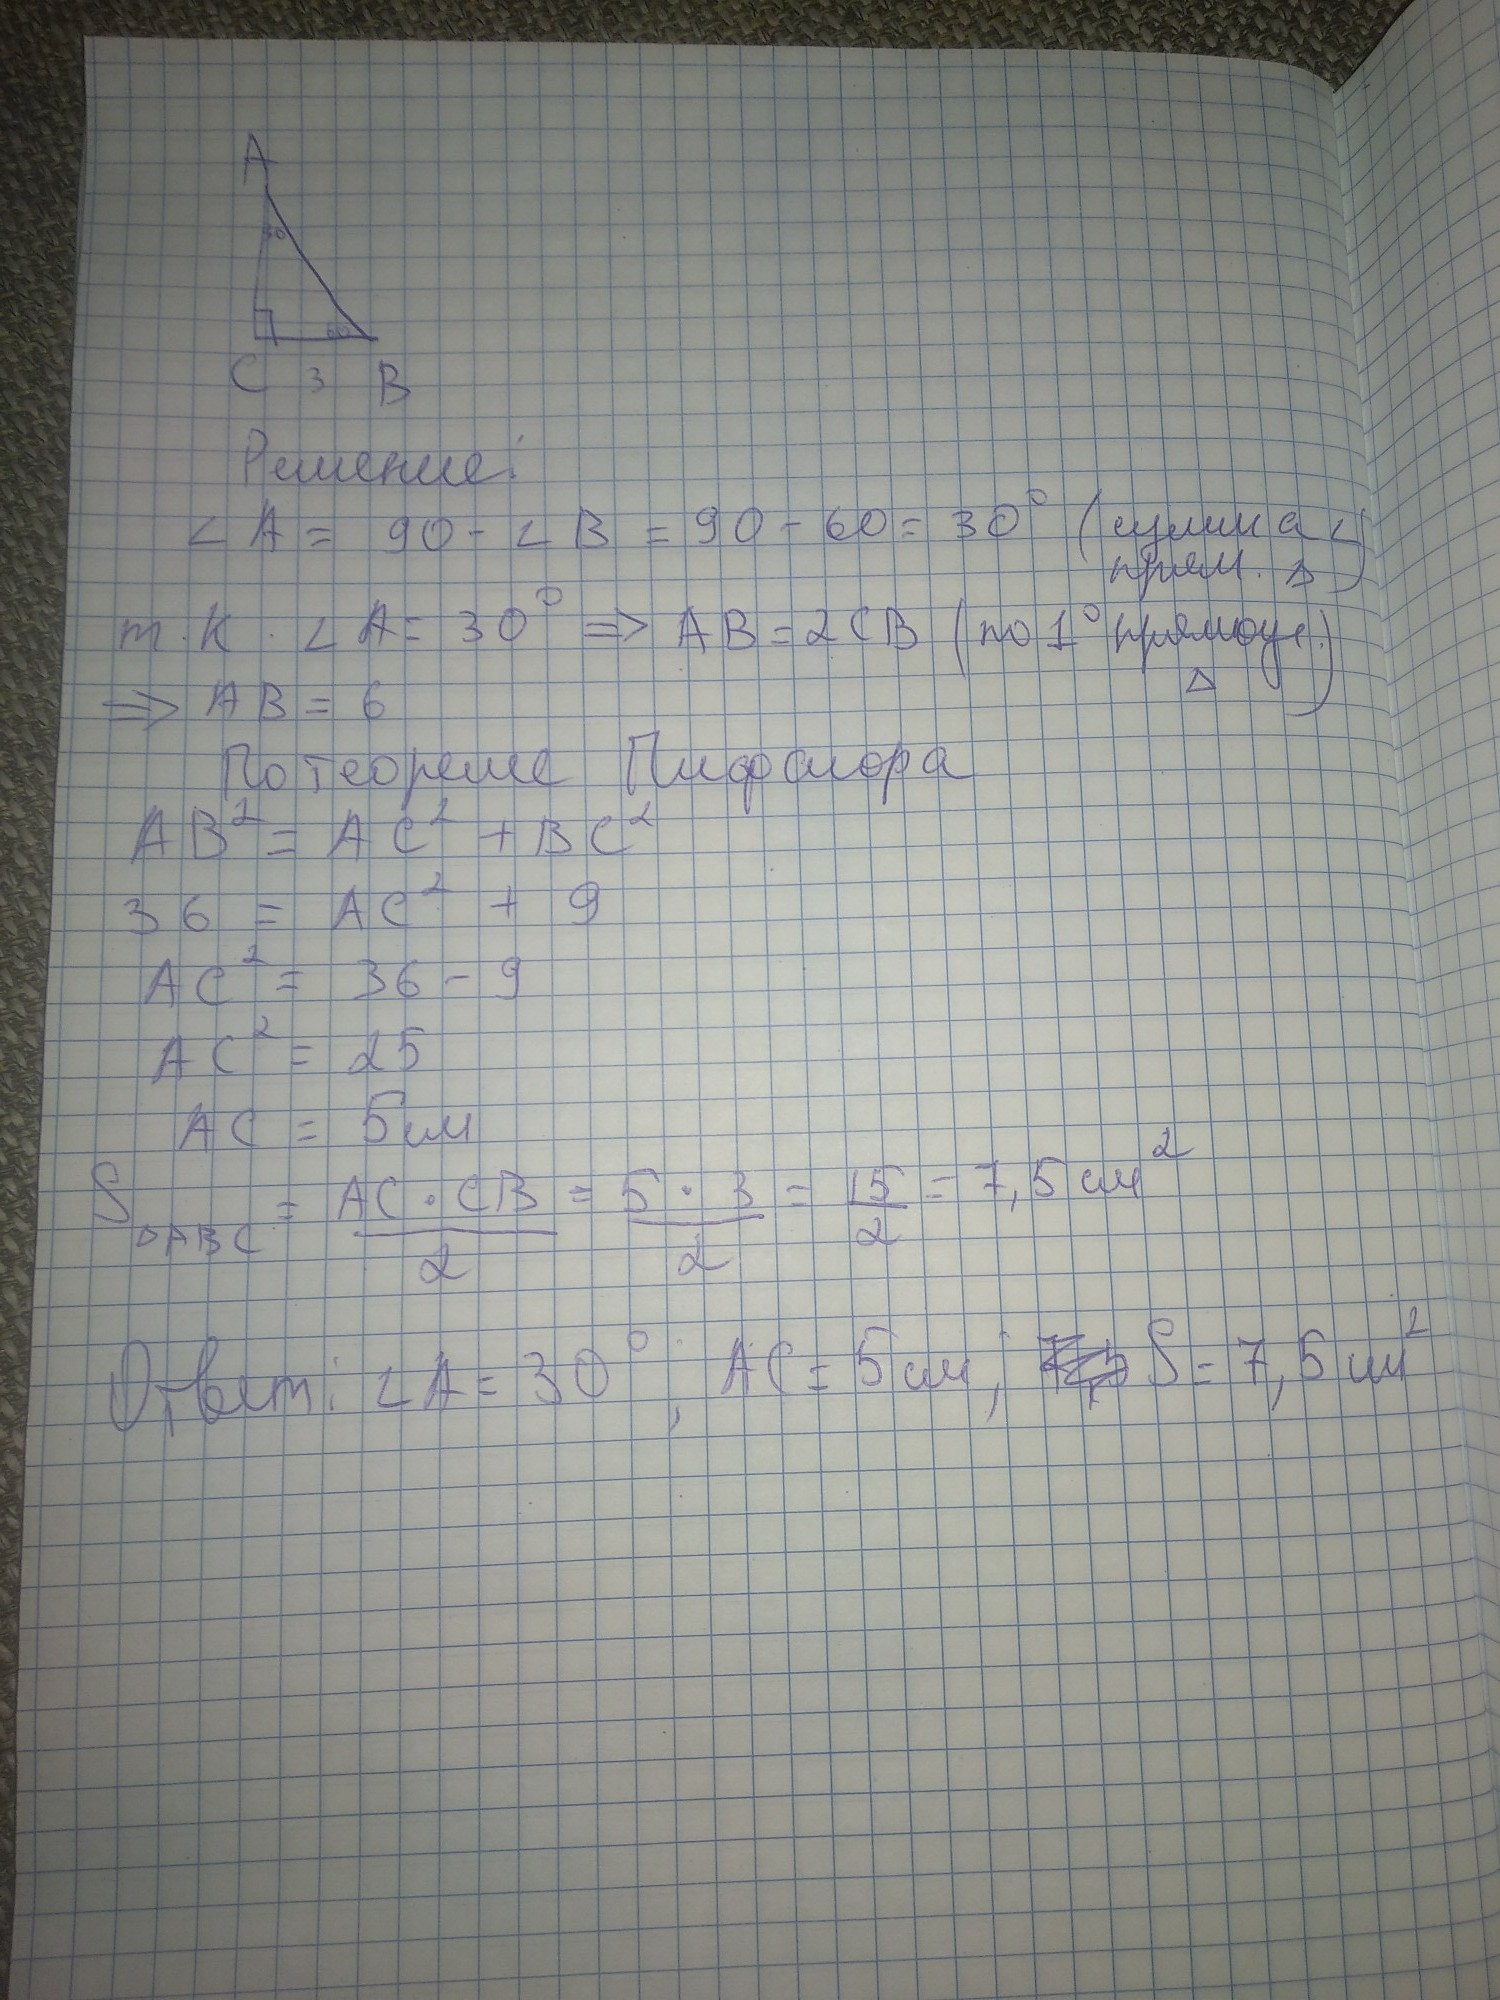 A
30
60
C 3 B
Решение:
∠A = 90 - ∠B = 90 - 60 = 30° (сумма ∠
прям. △)
т.к. ∠A = 30° => AB = 2CB (по 1° прямоуг.
△)
=> AB = 6
По теореме Пифагора
AB² = AC² + BC²
36 = AC² + 9
AC² = 36 - 9
AC² = 25
AC = 5 см
S△ABC = AC · CB / 2 = 5 · 3 / 2 = 15 / 2 = 7,5 см²
Ответ: ∠A = 30°; AC = 5 см; S = 7,5 см²